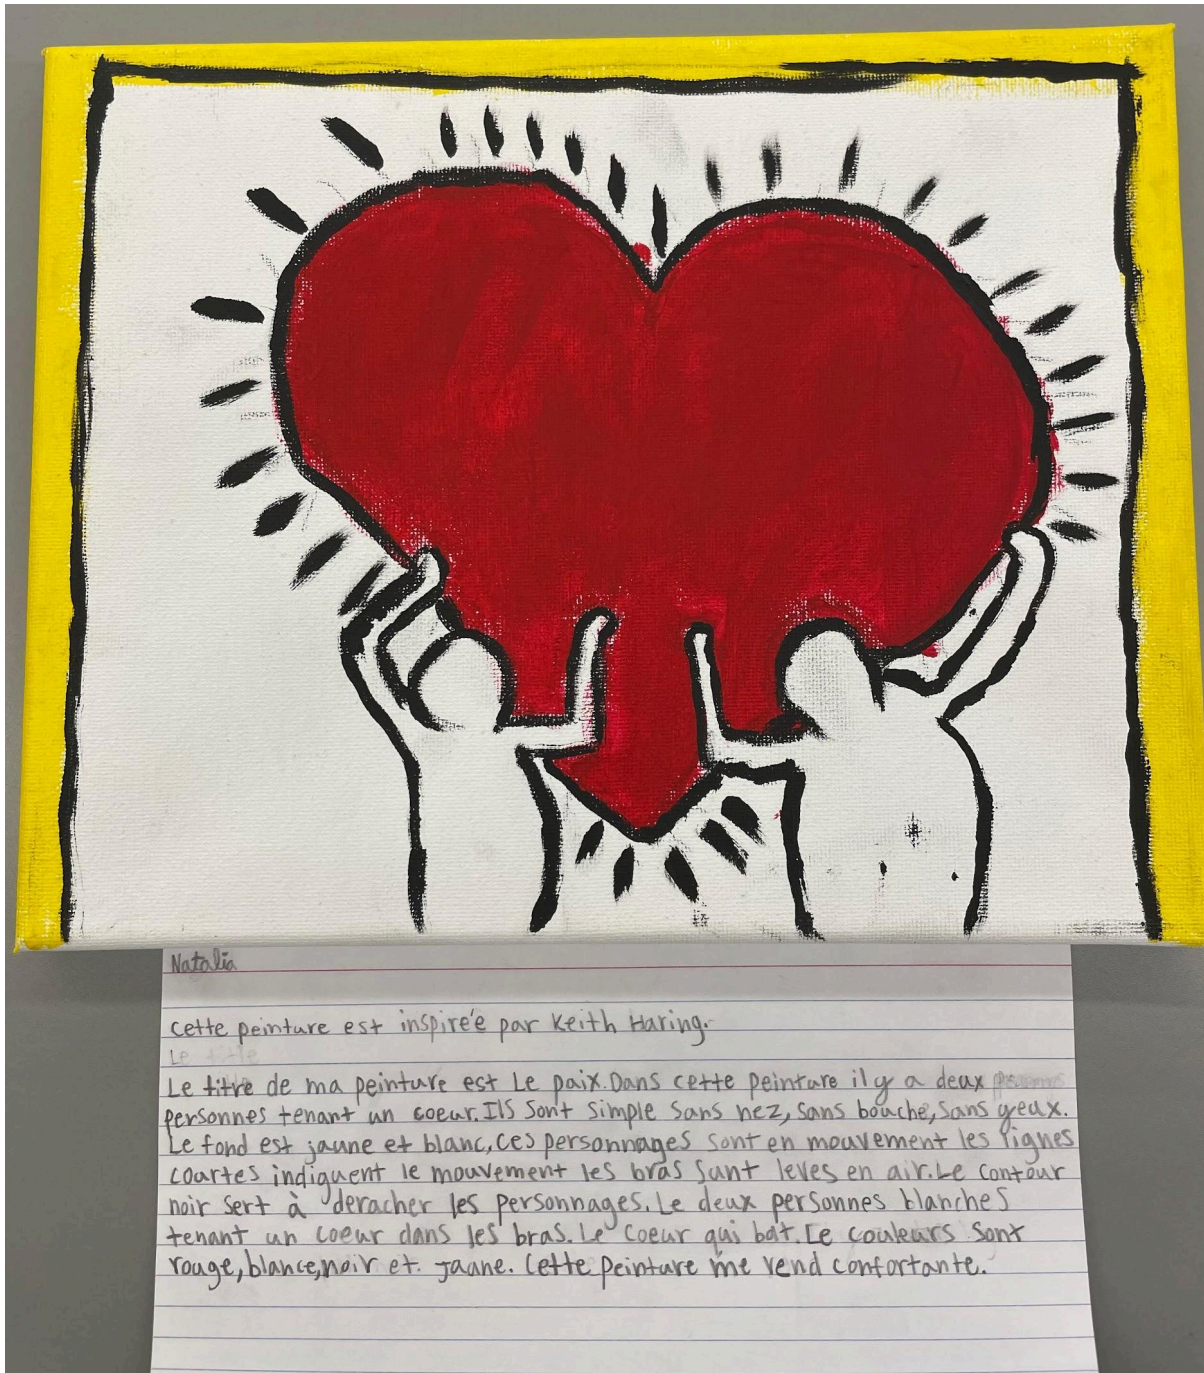 Natalia
Cette peinture est inspireé par Keith Haring.
Le title
Le titre de ma peinture est Le paix. Dans cette peinture il y a deux
personnes tenant un coeur. Ils sont simple sans nez, sans bouche, sans yeux.
Le fond est jaune et blanc, ces personnages sont en mouvement les lignes
courtes indiquent le mouvement les bras sunt leves en air. Le contour
noir sert à deracher les personnages. Le deux personnes blanches
tenant un coeur dans les bras. Le coeur qui bat. Le couleurs sont
rouge, blance, noir et jaane. Cette peinture me vend confortante.